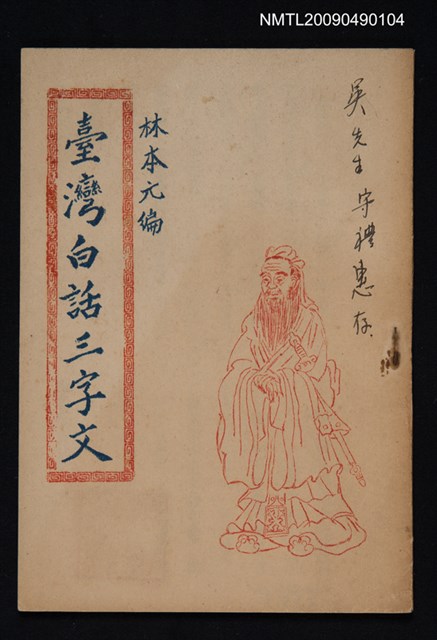 NMTL20090490104
吳先生守禮惠存
林本元編
臺灣白話三字文